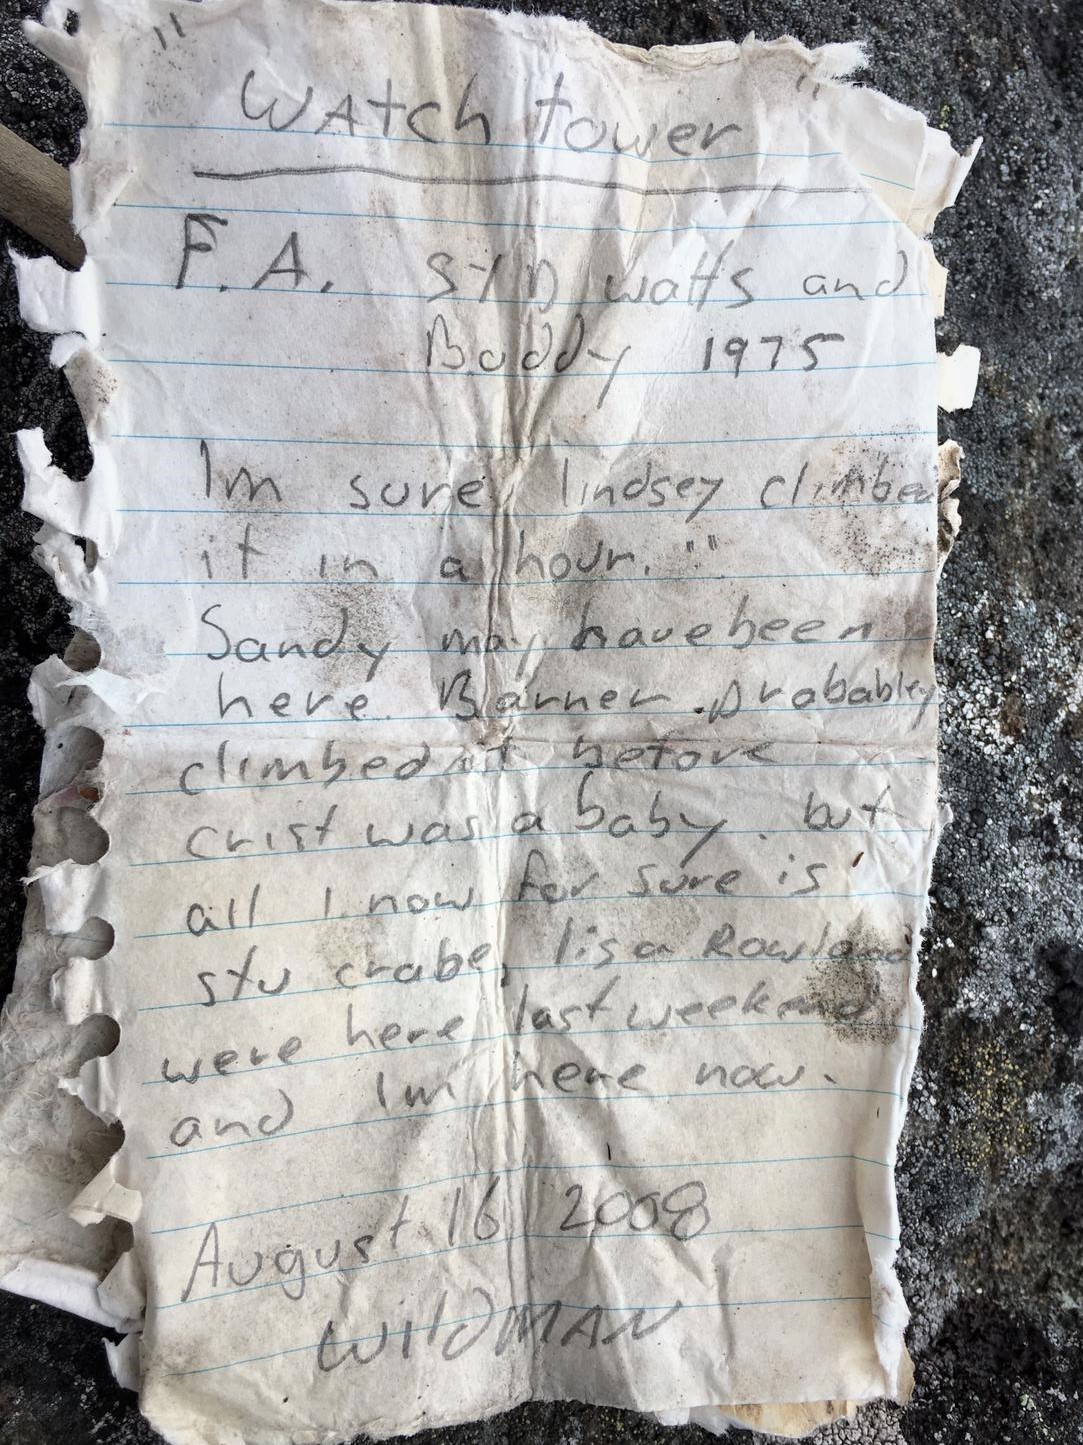 "Watch tower"
F.A. Syd watts and
Buddy 1975
Im sure lindsey climbed
it in a hour. "
Sandy may have been
here. Barner probabley
climbed it before
crist was a baby. but
all I now for sure is
stu crabe, lisa Rowland
were here last weekend
and Im here now.
August 16 2008
WildMAN